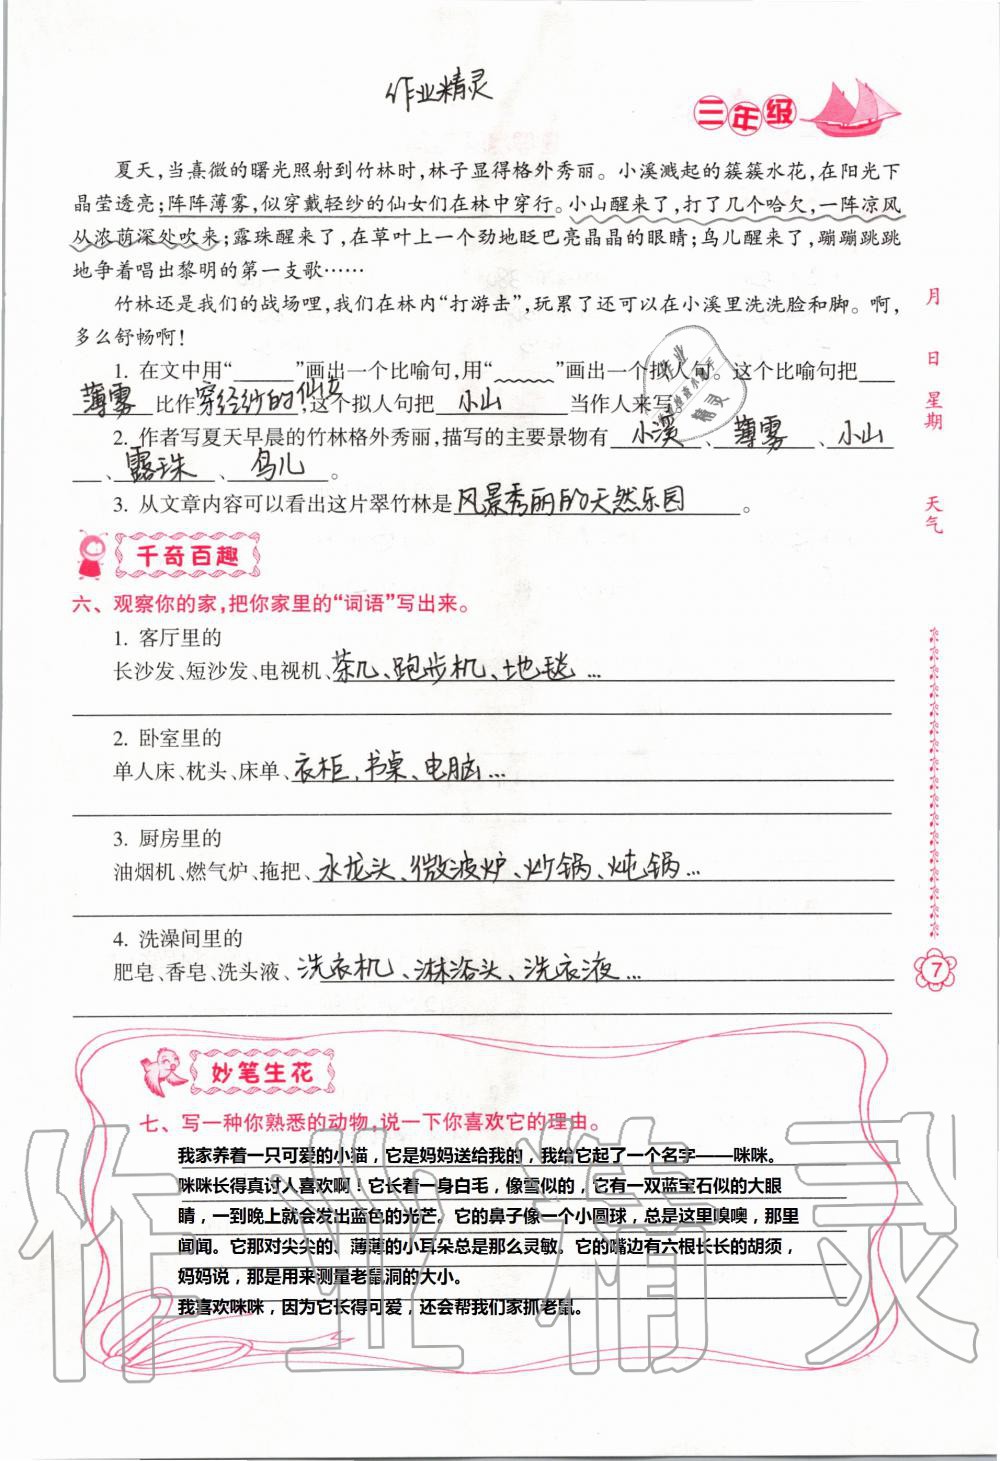 作业精灵
三年级
夏天,当熹微的曙光照射到竹林时,林子显得格外秀丽。小溪溅起的簇簇水花,在阳光下
晶莹透亮;阵阵薄雾,似穿戴轻纱的仙女们在林中穿行。小山醒来了,打了几个哈欠,一阵凉风
从浓荫深处吹来;露珠醒来了,在草叶上一个劲地眨巴亮晶晶的眼睛;鸟儿醒来了,蹦蹦跳跳
地争着唱出黎明的第一支歌……
竹林还是我们的战场哩,我们在林内“打游击”,玩累了还可以在小溪里洗洗脸和脚。啊,
多么舒畅啊!
1. 在文中用“______”画出一个比喻句,用“﹏﹏﹏”画出一个拟人句。这个比喻句把
薄雾比作穿轻纱的仙女,这个拟人句把 小山 当作人来写。
2. 作者写夏天早晨的竹林格外秀丽,描写的主要景物有 小溪 、薄雾 、小山
、露珠 、鸟儿 。
3. 从文章内容可以看出这片翠竹林是风景秀丽的天然乐园。
千奇百趣
六、观察你的家,把你家里的“词语”写出来。
1. 客厅里的
长沙发、短沙发、电视机、茶几、跑步机、地毯...
2. 卧室里的
单人床、枕头、床单、衣柜、书桌、电脑...
3. 厨房里的
油烟机、燃气炉、拖把、水龙头、微波炉、炒锅、炖锅...
4. 洗澡间里的
肥皂、香皂、洗头液、洗衣机、淋浴头、洗衣液...
妙笔生花
七、写一种你熟悉的动物,说一下你喜欢它的理由。
我家养着一只可爱的小猫，它是妈妈送给我的，我给它起了一个名字——咪咪。
咪咪长得真讨人喜欢啊！它长着一身白毛，像雪似的，它有一双蓝宝石似的大眼
睛，一到晚上就会发出蓝色的光芒。它的鼻子像一个小圆球，总是这里嗅噢，那里
闻闻。它那对尖尖的、薄薄的小耳朵总是那么灵敏。它的嘴边有六根长长的胡须，
妈妈说，那是用来测量老鼠洞的大小。
我喜欢咪咪，因为它长得可爱，还会帮我们家抓老鼠。
月
日
星期
天气
7
作业精灵